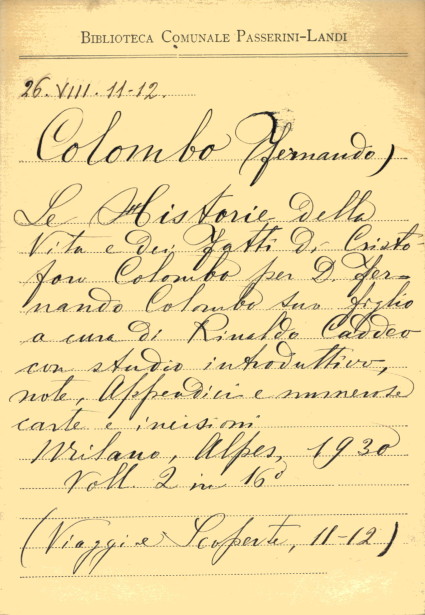 BIBLIOTECA COMUNALE PASSERINI-LANDI
26.VIII.11-12.
Colombo (Fernando)
Le Historie della
Vita e dei Fatti di Cristo-
foro Colombo per D. Fer-
nando Colombo suo figlio
a cura di Rinaldo Caddeo
con studio introduttivo,
note, Appendici e numerose
carte e incisioni
Milano, Alpes, 1930
Voll. 2 in 16º
(Viaggi e Scoperte, 11-12)